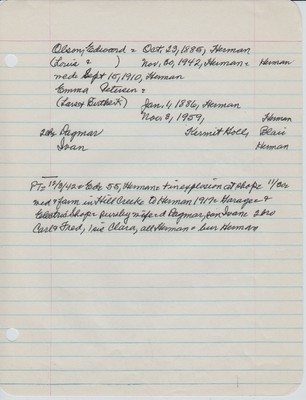 Olson, Edward = Oct. 23, 1885, Herman
(Louis = ) Nov. 30, 1942, Herman = Herman
wed = Sept 15, 1910, Herman
Emma Petersen =
(Lars = ) Jan. 1, 1886, Herman
Nov. 3, 1959, Herman
2ch = Dagmar Kermit Holl, Blair
Ivan Herman
PT = 12/3/42 = Edw 55, Herman = in explosion at shop = 11/30 =
wed = farm in Hill Creek = to Herman 1917 = Garage =
Shop = surv by wife = Dagmar, son Ivan = 2 bro
Carl = Fred, 1 sis Clara, all Herman = bur Herman